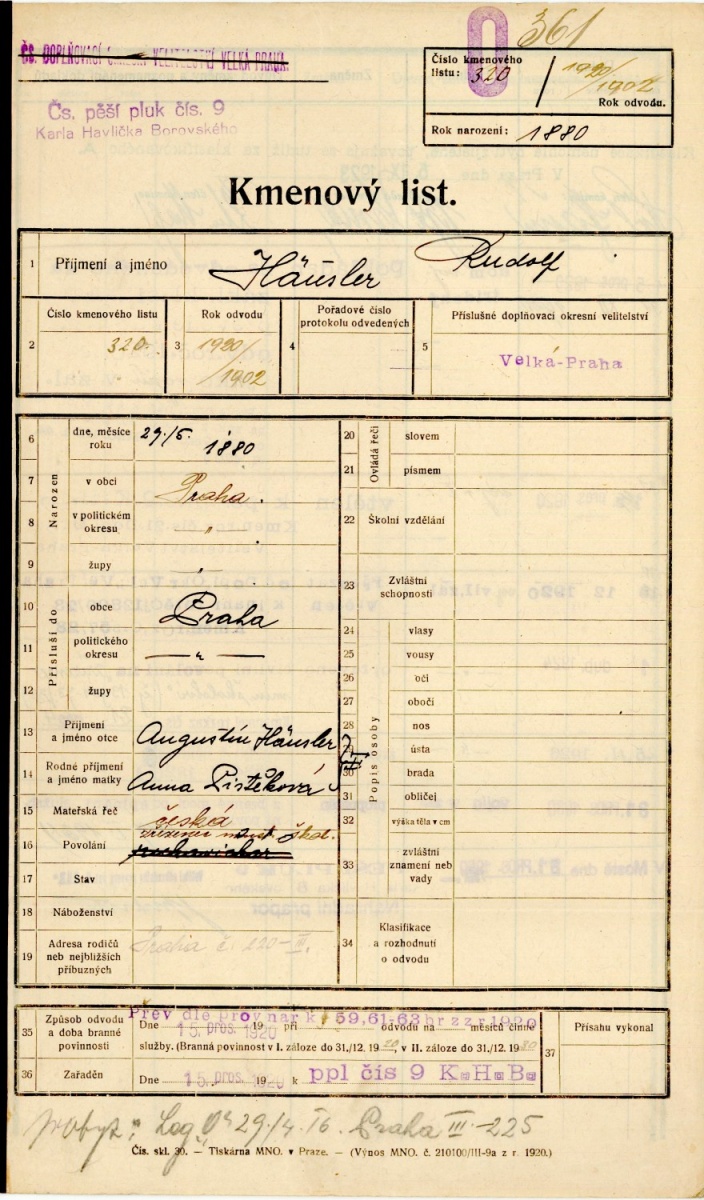 361
ČS. DOPLŇOVACÍ OKRESNÍ VELITELSTVÍ VELKÁ PRAHA.
Čs. pěší pluk čís. 9
Karla Havlíčka Borovského
0
Číslo kmenového listu: 320 / 1920/1902
Rok odvodu.
Rok narození: 1880
Kmenový list.
1 Příjmení a jméno Häusler Rudolf
2 Číslo kmenového listu 320.
3 Rok odvodu 1920/1902
4 Pořadové číslo protokolu odvedených
5 Příslušné doplňovací okresní velitelství Velká-Praha
Narozen
6 dne, měsíce roku 29./5. 1880
7 v obci Praha.
8 v politickém okresu "
9 župy
Přísluší do
10 obce Praha
11 politického okresu — " —
12 župy
13 Příjmení a jméno otce Augustín Häusler
14 Rodné příjmení a jméno matky Anna Pištěková
15 Mateřská řeč česká
16 Povolání
17 Stav
18 Náboženství
19 Adresa rodičů neb nejbližších příbuzných Praha č. 220-III.
Ovládá řeči
20 slovem
21 písmem
22 Školní vzdělání
23 Zvláštní schopnosti
Popis osoby
24 vlasy
25 vousy
26 oči
27 obočí
28 nos
29 ústa
30 brada
31 obličej
32 výška těla v cm
33 zvláštní znamení neb vady
34 Klasifikace a rozhodnutí o odvodu
35 Způsob odvodu a doba branné povinnosti
Přev dle prov nar k § 59,61-63 br z z r 1920
Dne 15. pros. 1920 19 při odvodu na měsíců činné
služby. (Branná povinnost v I. záloze do 31./12. 1920, v II. záloze do 31./12. 1930
36 Zařaděn Dne 15. pros. 1920 19 k ppl čís 9 K.H.B.
37 Přísahu vykonal
Log 29/4 16. Praha III-225
Čís. skl. 30. — Tiskárna MNO. v Praze. — (Výnos MNO. č. 210100/III-9a z r. 1920.)